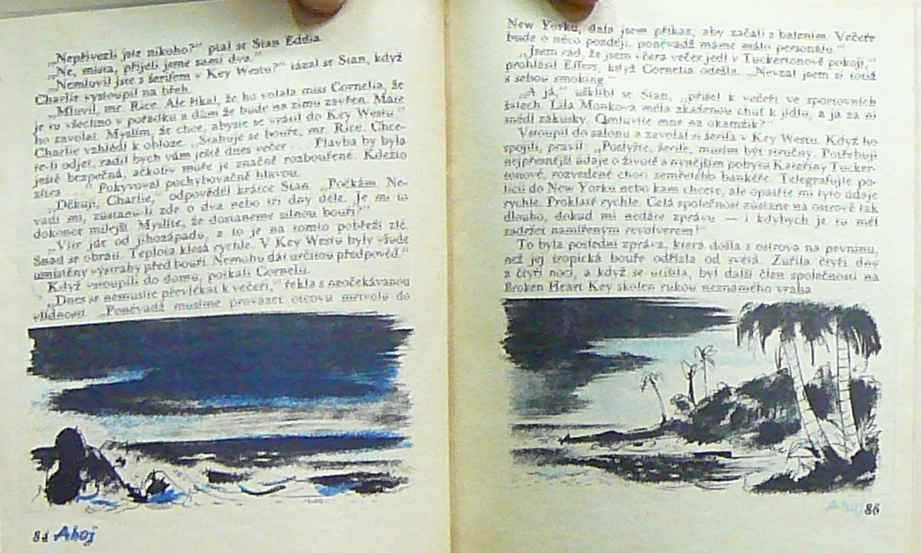 „Nepřivezli jste nikoho?" ptal se Stan Eddia.
„Ne, místa, přijeli jsme sami dva."
„Nemluvil jste s šerifem v Key Westu?" tázal se Stan, když
Charlie vystoupil na břeh.
„Mluvil, mr. Rice. Ale říkal, že ho volala miss Cornelia, že
je tu všechno v pořádku a dům že bude na zimu zavřen. Máte
ho zavolat. Myslím, že chce, abyste se vrátil do Key Westu."
Charlie vzhlédl k obloze. „Stahuje se bouře, mr. Rice. Chce-
te-li odjet, radil bych vám ještě dnes večer... Plavba by byla
ještě bezpečná, ačkoliv moře je značně rozbouřené. Kdežto
zítra..." Pokyvoval pochybovačně hlavou.
„Děkuji, Charlie," odpověděl krátce Stan. „Počkám. Ne-
vadí mi, zůstanu-li zde o dva nebo tři dny déle. Je mi to
dokonce milejší. Myslíte, že dostaneme silnou bouři?"
„Vítr jde od jihozápadu, a to je na tomto pobřeží zlé.
Snad se obrátí. Teplota klesá rychle. V Key Westu byly všude
umístěny výstrahy před bouří. Nemohu dát určitou předpověď."
Když vstoupili do domu, potkali Cornelii.
„Dnes se nemusíte převlékat k večeři," řekla s neočekávanou
vlídností. „Poněvadž musíme provázet otcovu mrtvolu do
84 Ahoj
New Yorku, dala jsem příkaz, aby začali s balením. Večeře
bude o něco později, poněvadž máme málo personálu."
„Jsem rád, že jsem včera večer jedl v Tuckertonově pokoji,"
prohlásil Effers, když Cornelia odešla. „Nevzal jsem si totiž
s sebou smoking."
„A já," ušklíbl se Stan, „přišel k večeři ve sportovních
šatech. Lila Monkova měla zkaženou chuť k jídlu, a já za ni
snědl zákusky. Omluvíte mne na okamžik?"
Vstoupil do salonu a zavolal si šerifa v Key Westu. Když ho
spojili, pravil: „Poslyšte, šerife, musím být stručný. Potřebuji
nejpřesnější údaje o životě a nynějším pobytu Kateřiny Tucker-
tonové, rozvedené choti zemřelého bankéře. Telegrafujte po-
licii do New Yorku nebo kam chcete, ale opatřte mi tyto údaje
rychle. Prokletě rychle. Celá společnost zůstane na ostrově tak
dlouho, dokud mi nedáte zprávu — i kdybych je tu měl
zadržet namířeným revolverem!"
To byla poslední zpráva, která došla s ostrova na pevninu,
než jej tropická bouře odřízla od světa. Zuřila čtyři dny
a čtyři noci, a když se utišila, byl další člen společnosti na
Broken Heart Key skolen rukou neznámého vraha.
Ahoj 85